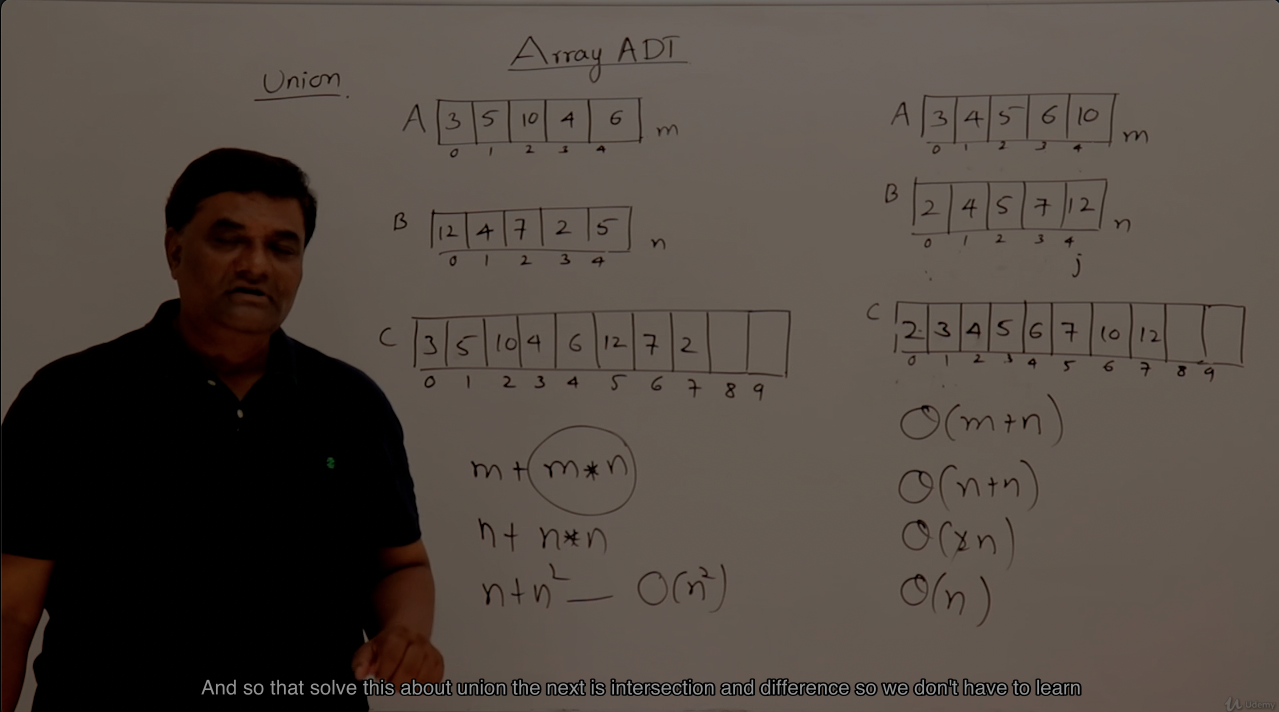 Array ADT
Union.
A 3 5 10 4 6 m
0 1 2 3 4
B 12 4 7 2 5 n
0 1 2 3 4
C 3 5 10 4 6 12 7 2
0 1 2 3 4 5 6 7 8 9
m + m * n
n + n * n
n + n² — O(n²)
A 3 4 5 6 10 m
0 1 2 3 4
B 2 4 5 7 12 n
0 1 2 3 4
j
C 2 3 4 5 6 7 10 12
0 1 2 3 4 5 6 7 8 9
O(m+n)
O(n+n)
O(2n)
O(n)
And so that solve this about union the next is intersection and difference so we don't have to learn
Udemy